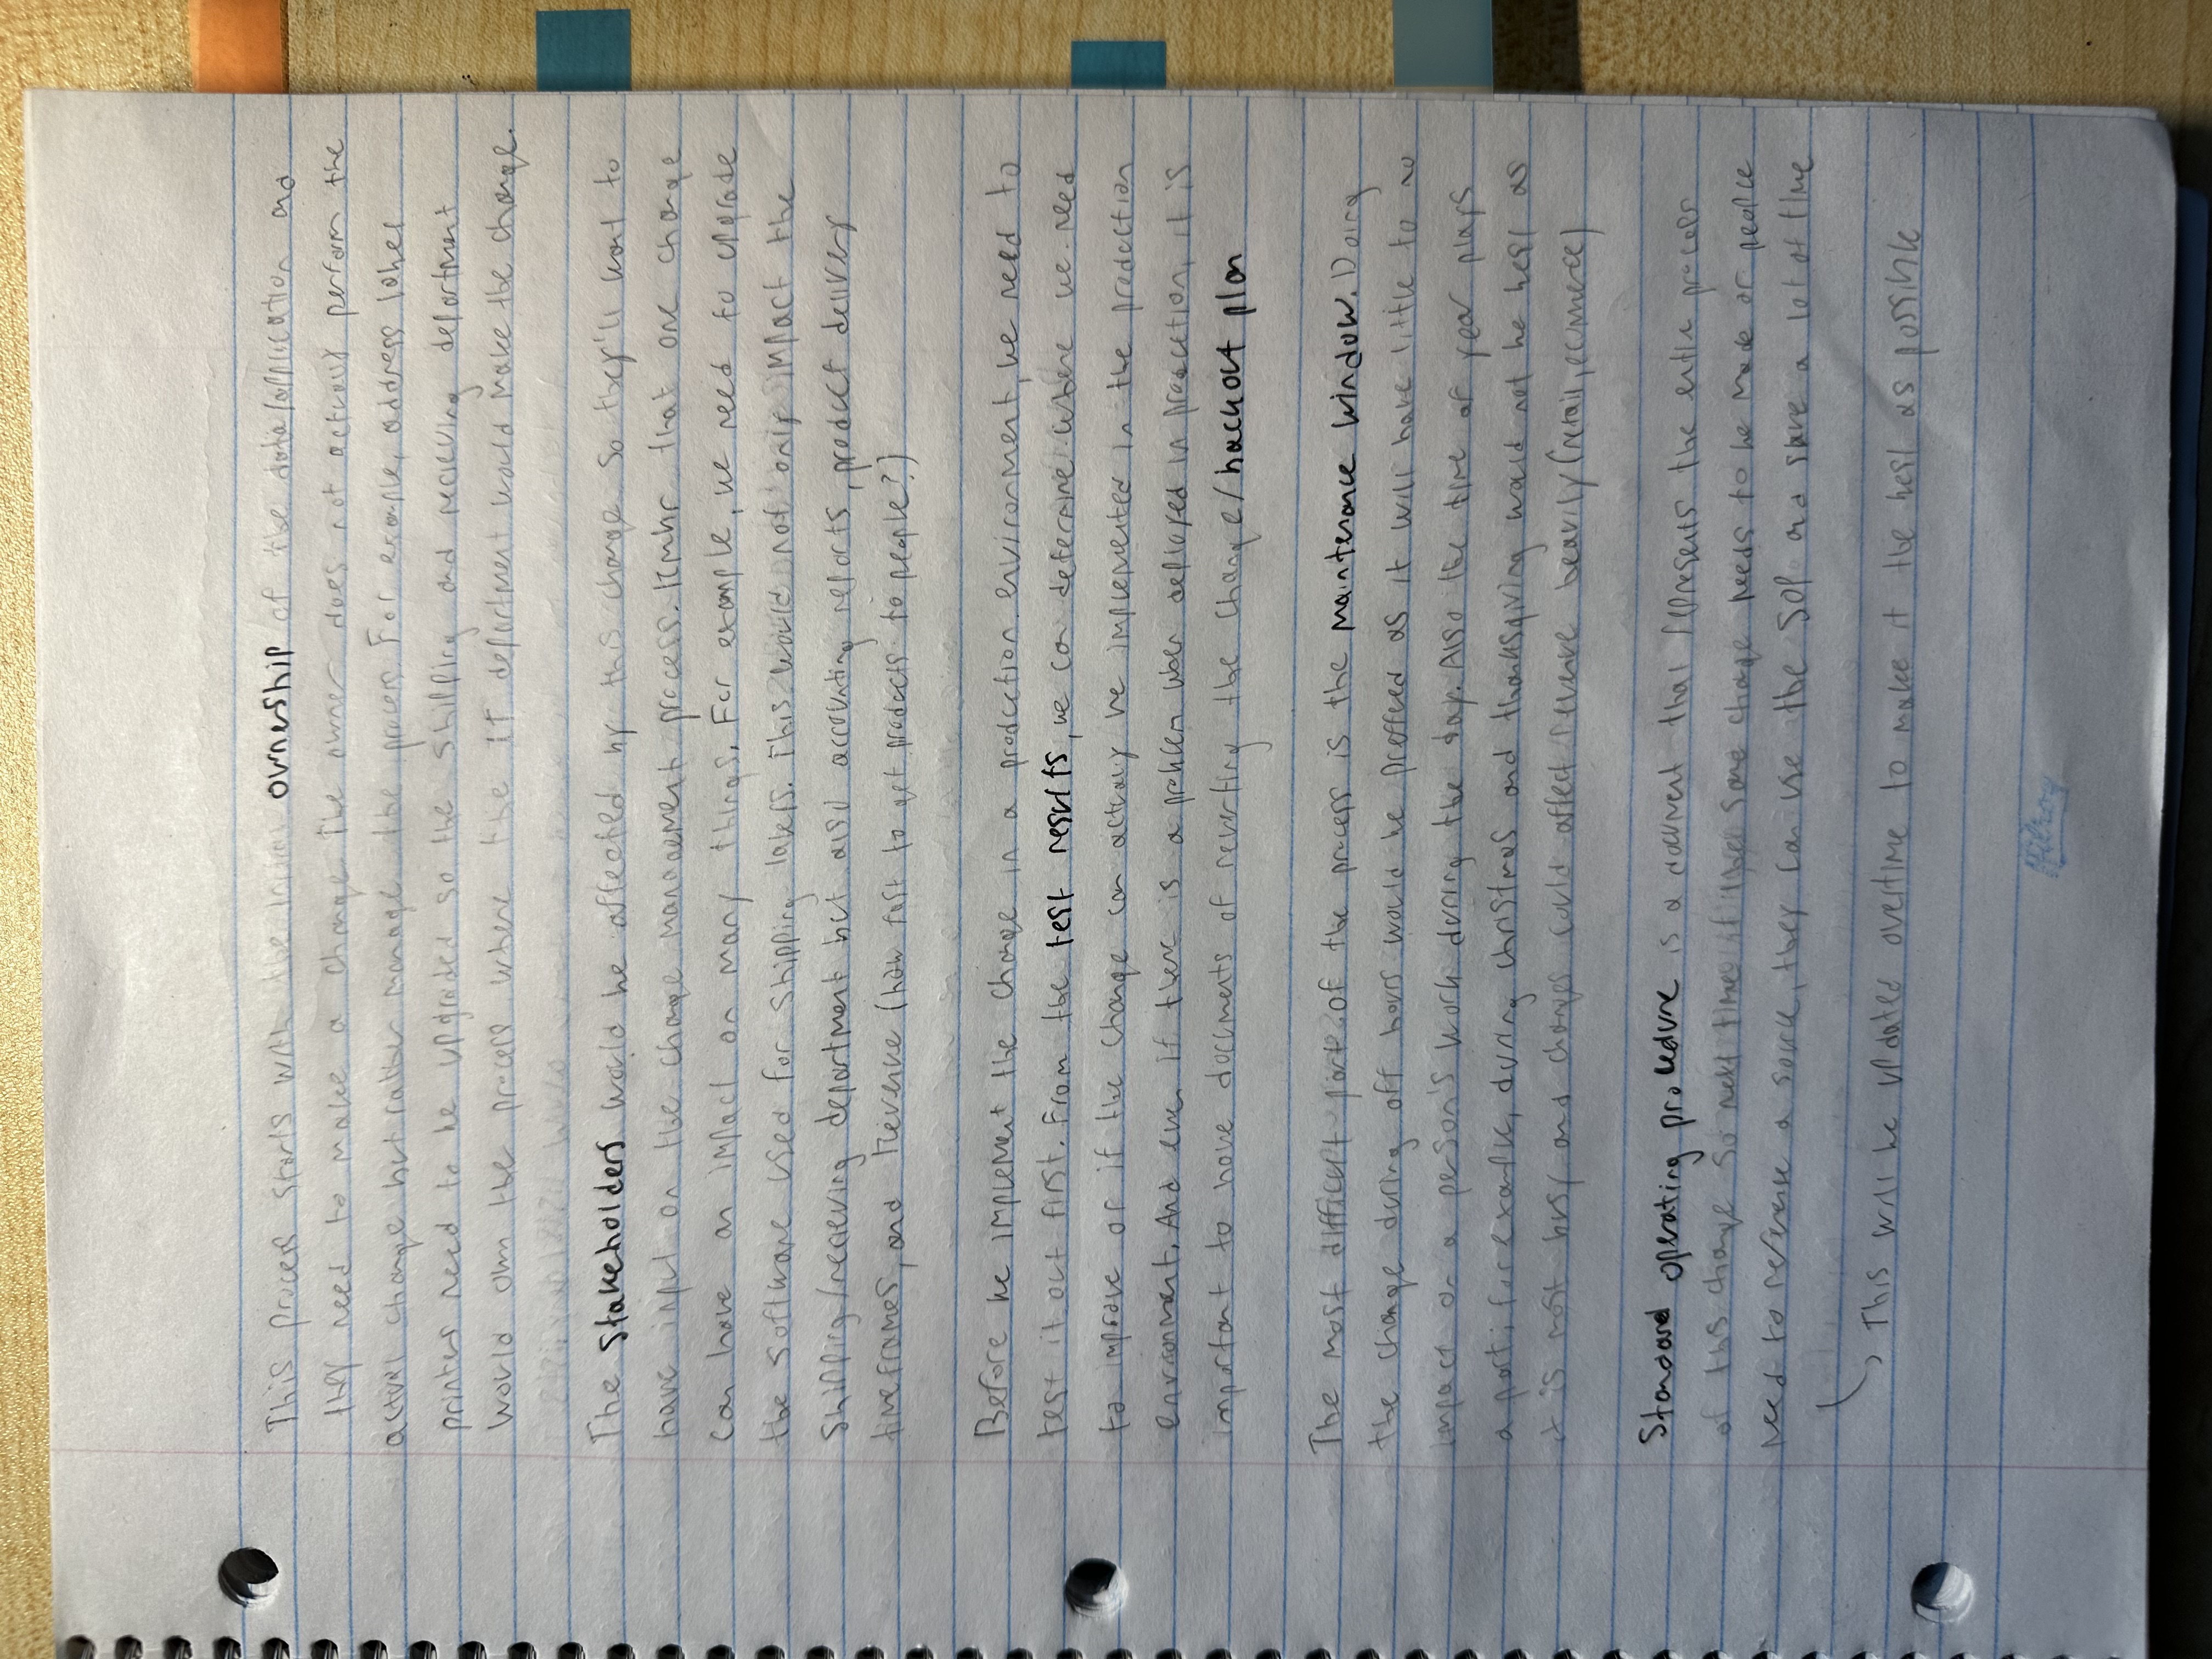 This process starts with the initial ownership of the data/application and
they need to make a change. The owner does not actually perform the
actual change but rather manage the process. For example, address label
printers need to be upgraded so the shipping and recieving department
would own the process where the IT department would make the change.
The stakeholders would be affected by this change so they'll want to
have input on the change management process. Rmbr that one change
can have an impact on many things. For example, we need to upgrade
the software used for shipping labels. This would not only impact the
shipping/recieving department but also accounting reports, product delivery
timeframes, and revenue (how fast to get products to people?)
Before we implement the change in a production environment, we need to
test it out first. From the test results, we can determine where we need
to improve or if the change can actually be implemented in the production
environment. And even if there is a problem when deployed in production, it is
important to have documents of reverting the change/backout plan
The most difficult part of the process is the maintenance window. Doing
the change during off hours would be preffered as it will have little to no
impact on a person's work during the day. Also the time of year plays
a part; for example, during christmas and thanksgiving would not be best as
it is most busy and changes could affect revenue heavily (retail, ecommerce)
Standard operating procedure is a document that represents the entire process
of this change so next time if same change needs to be made or people
need to reference a source, they can use the SOP and save a lot of time
This will be updated overtime to make it the best as possible
Hilroy